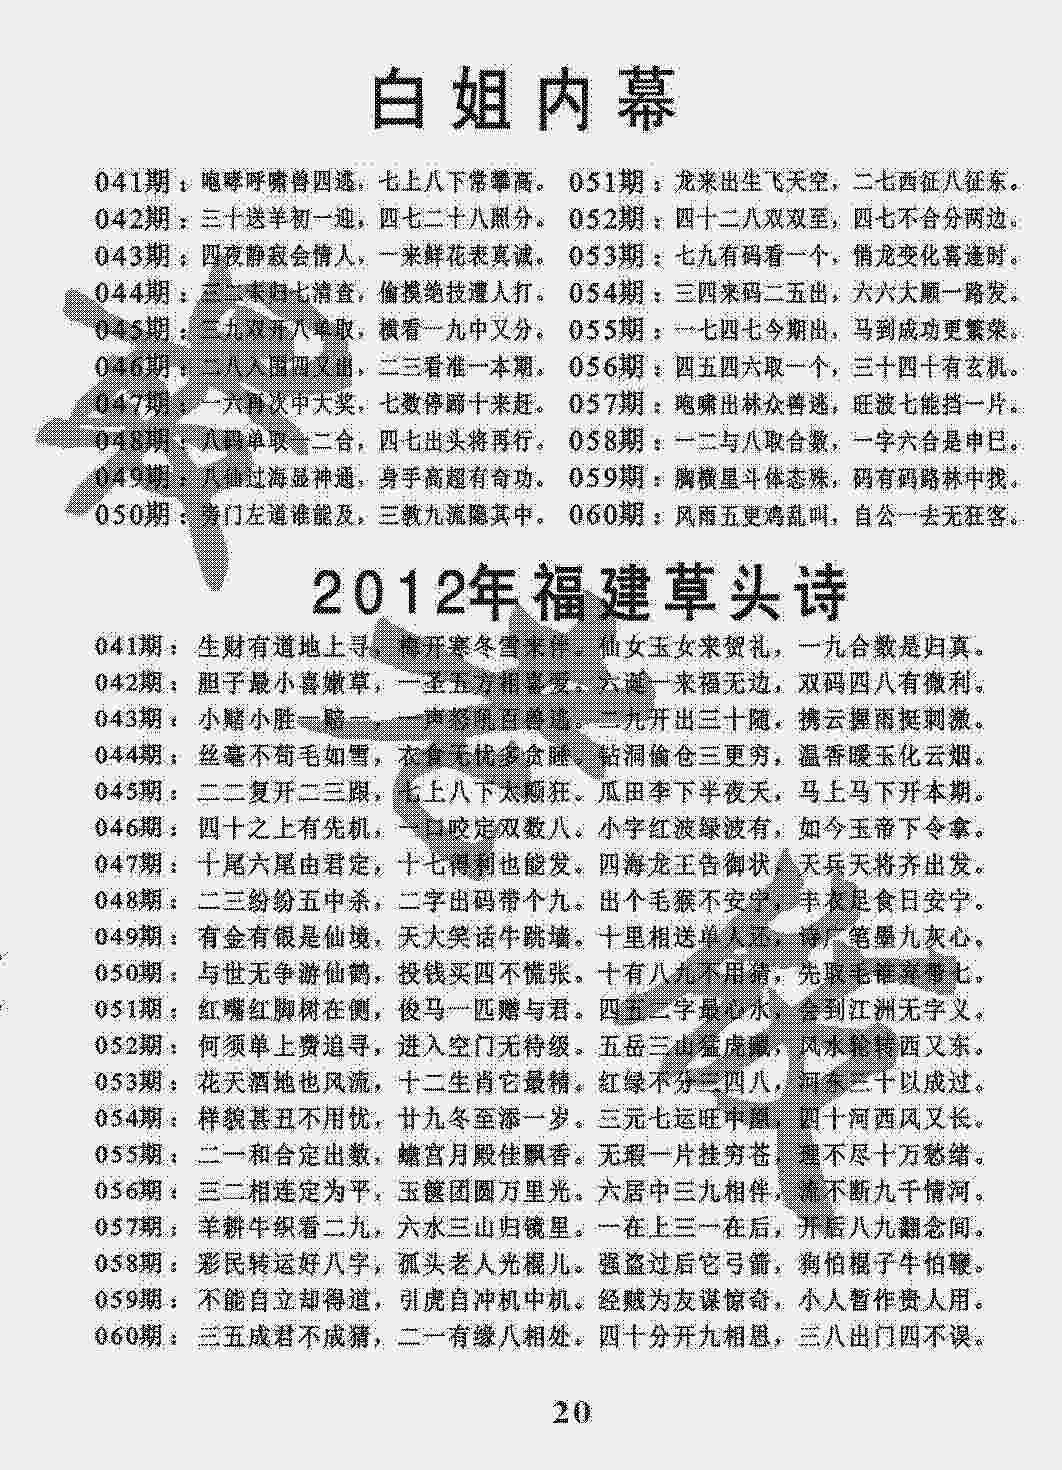 白姐内幕
041期：咆哮呼啸兽四逃，七上八下常攀高。
042期：三十送羊初一迎，四七二十八照分。
043期：四夜静寂会情人，一来鲜花表真诚。
044期：三二来归七清查，偷摸绝技遭人打。
045期：三九双开八单取，横看一九中又分。
046期：二八入围四又出，二三看准一本期。
047期：一六再次中大奖，七数停蹄十来赶。
048期：八四单取一二合，四七出头将再行。
049期：八仙过海显神通，身手高超有奇功。
050期：旁门左道谁能及，三教九流隐其中。
051期：龙来出生飞天空，二七西征八征东。
052期：四十二八双双至，四七不合分两边。
053期：七九有码看一个，悄龙变化喜逢时。
054期：三四来码二五出，六六大顺一路发。
055期：一七四七今期出，马到成功更繁荣。
056期：四五四六取一个，三十四十有玄机。
057期：咆啸出林众兽逃，旺波七能挡一片。
058期：一二与八取合数，一字六合是申巳。
059期：胸横星斗体态殊，码有码路林中找。
060期：风雨五更鸡乱叫，自公一去无狂客。
2012年福建草头诗
041期：生财有道地上寻，梅开寒冬雪来伴。仙女玉女来贺礼，一九合数是归真。
042期：胆子最小喜嫩草，一圣五方相喜发。六诞一来福无边，双码四八有微利。
043期：小赌小胜一赔一，一声怒吼百兽逃。二九开出三十随，携云握雨挺刺激。
044期：丝毫不苟毛如雪，衣食无忧多贪睡。钻洞偷仓三更穷，温香暖玉化云烟。
045期：二二复开二三跟，七上八下太颠狂。瓜田李下半夜天，马上马下开本期。
046期：四十之上有先机，一口咬定双数八。小字红波绿波有，如今玉帝下令拿。
047期：十尾六尾由君定，十七得利也能发。四海龙王告御状，天兵天将齐出发。
048期：二三纷纷五中杀，二字出码带个九。出个毛猴不安宁，丰衣足食日安宁。
049期：有金有银是仙境，天大笑话牛跳墙。十里相送单人还，诗广笔墨九灰心。
050期：与世无争游仙鹤，投钱买四不慌张。十有八九不用猜，先取毛锥七。
051期：红嘴红脚树在侧，俊马一匹赠与君。四五二字最心水，会到江洲无字义。
052期：何须单上费追寻，进入空门无待级。五岳三山猛虎藏，风水轮转西又东。
053期：花天酒地也风流，十二生肖它最精。红绿不分三四八，河东三十以成过。
054期：样貌甚丑不用忧，廿九冬至添一岁。三元七运旺中原，四十河西风又长。
055期：二一和合定出数，蟾宫月殿佳飘香。无瑕一片挂穷苍，理不尽十万愁绪。
056期：三二相连定为平，玉箧团圆万里光。六居中三九相伴，流不断九千情河。
057期：羊耕牛织看二九，六水三山归镜里。一在上三一在后，开后八九翻念间。
058期：彩民转运好八字，孤头老人光棍儿。强盗过后它弓箭，狗怕棍子牛怕鞭。
059期：不能自立却得道，引虎自冲机中机。经贼为友谋惊奇，小人暂作贵人用。
060期：三五成君不成猜，二一有缘八相处。四十分开九相思，三八出门四不误。
20